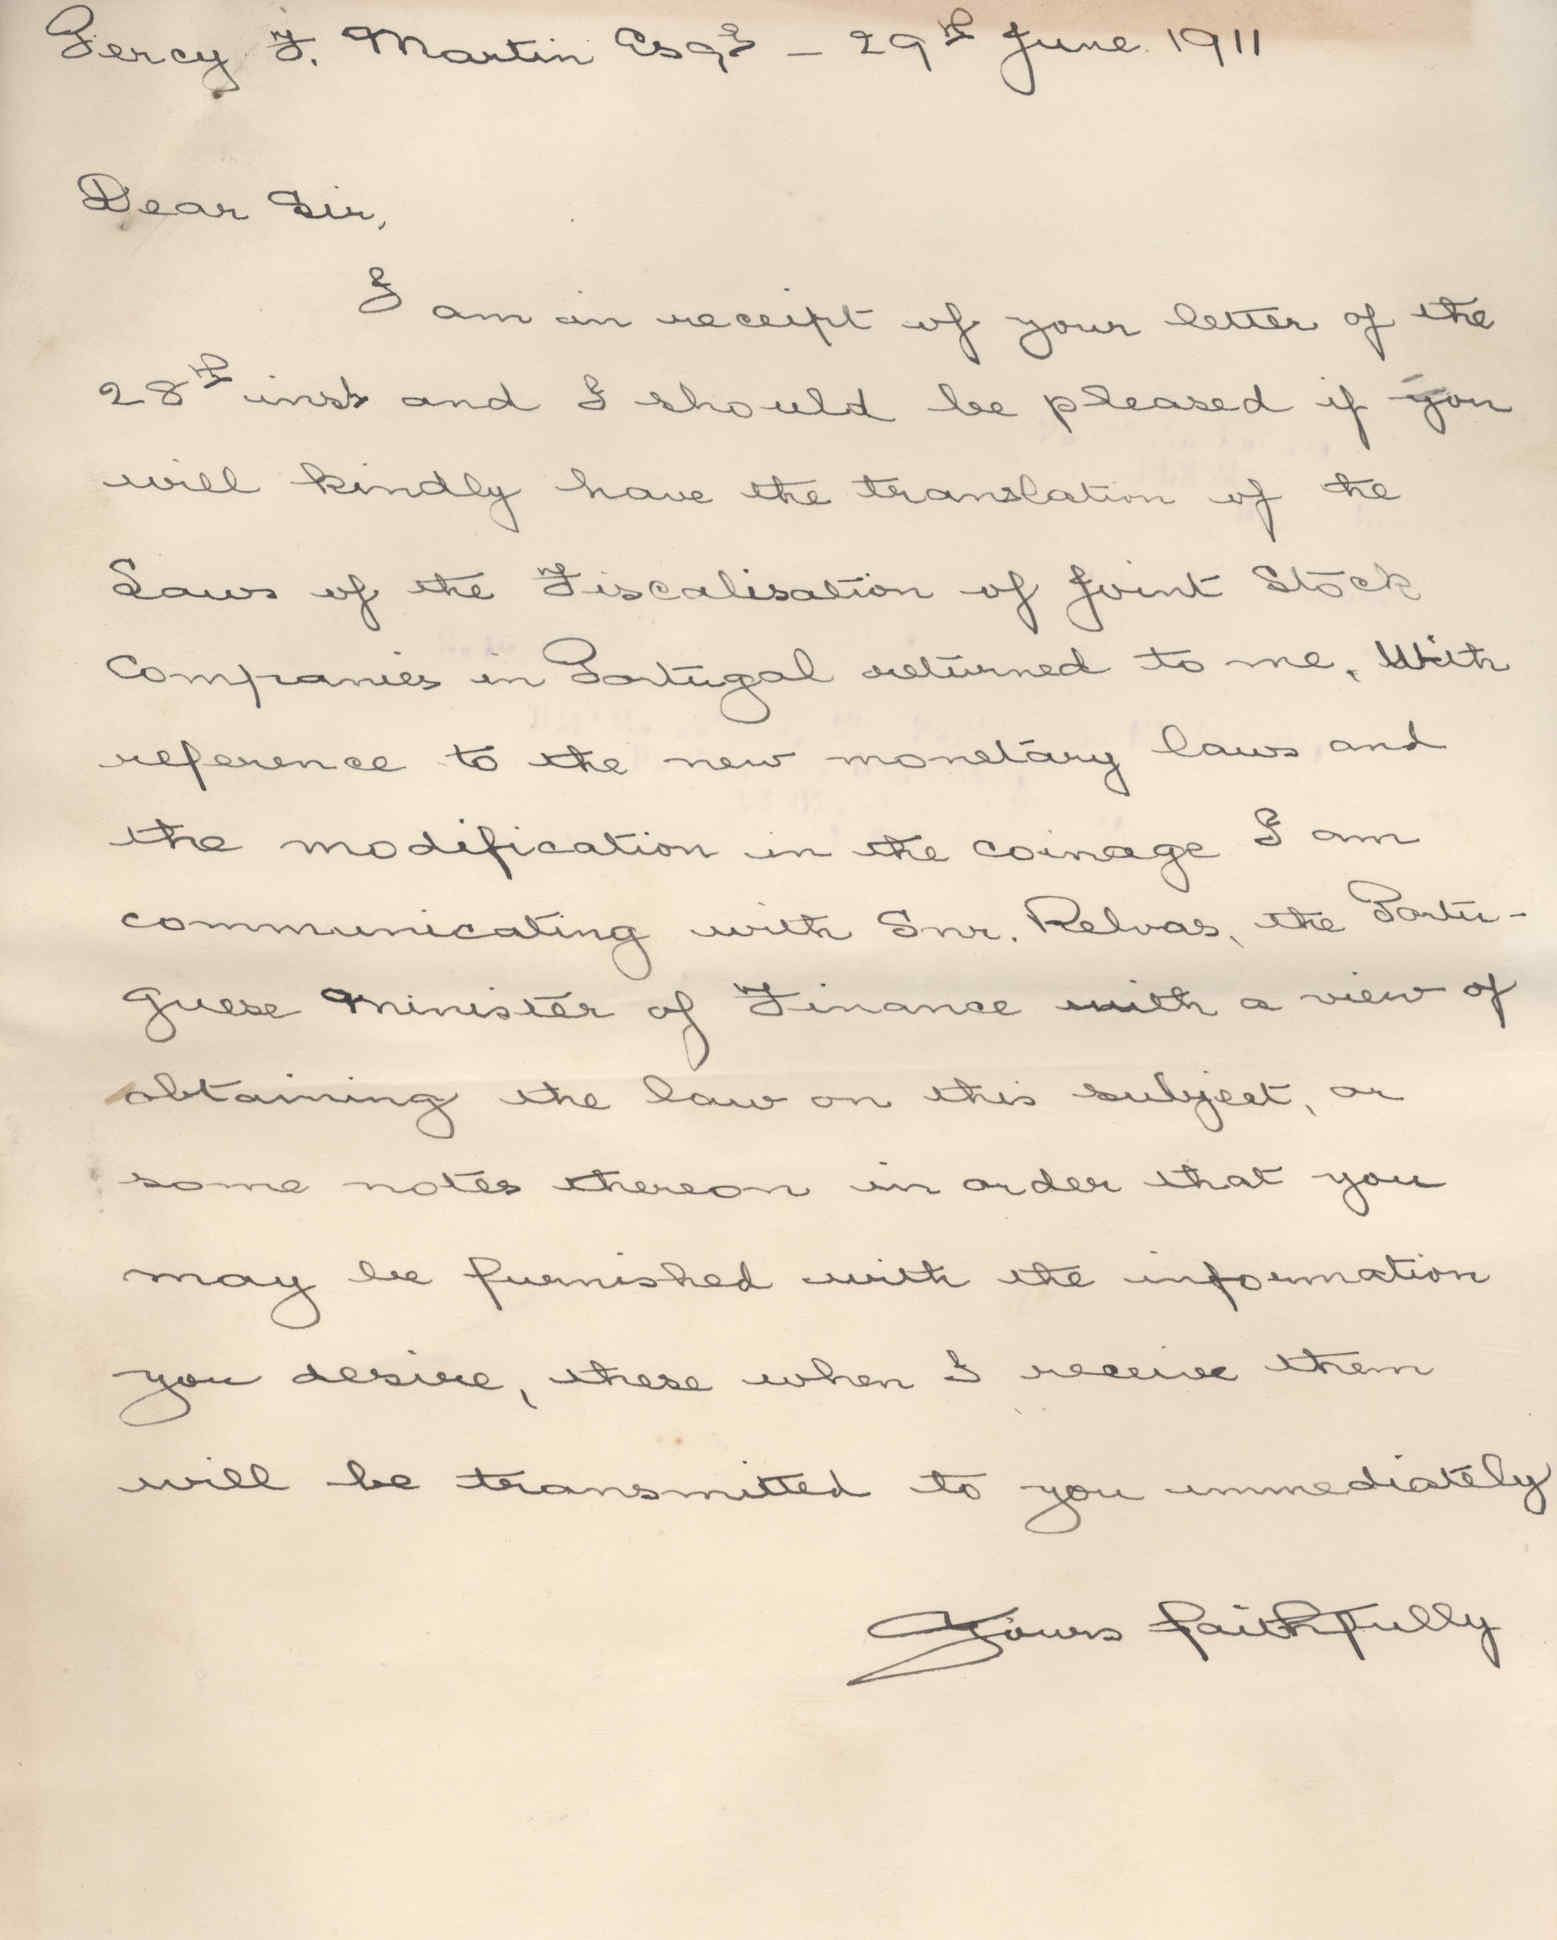 Percy F. Martin Esqr – 29th June 1911
Dear Sir,
I am in receipt of your letter of the
28th inst and I should be pleased if you
will kindly have the translation of the
Laws of the Fiscalisation of Joint Stock
Companies in Portugal returned to me. With
reference to the new monetary laws and
the modification in the coinage I am
communicating with Snr. Relvas, the Portu-
guese Minister of Finance with a view of
obtaining the law on this subject, or
some notes thereon in order that you
may be furnished with the information
you desire, these when I receive them
will be transmitted to you immediately
Yours faithfully